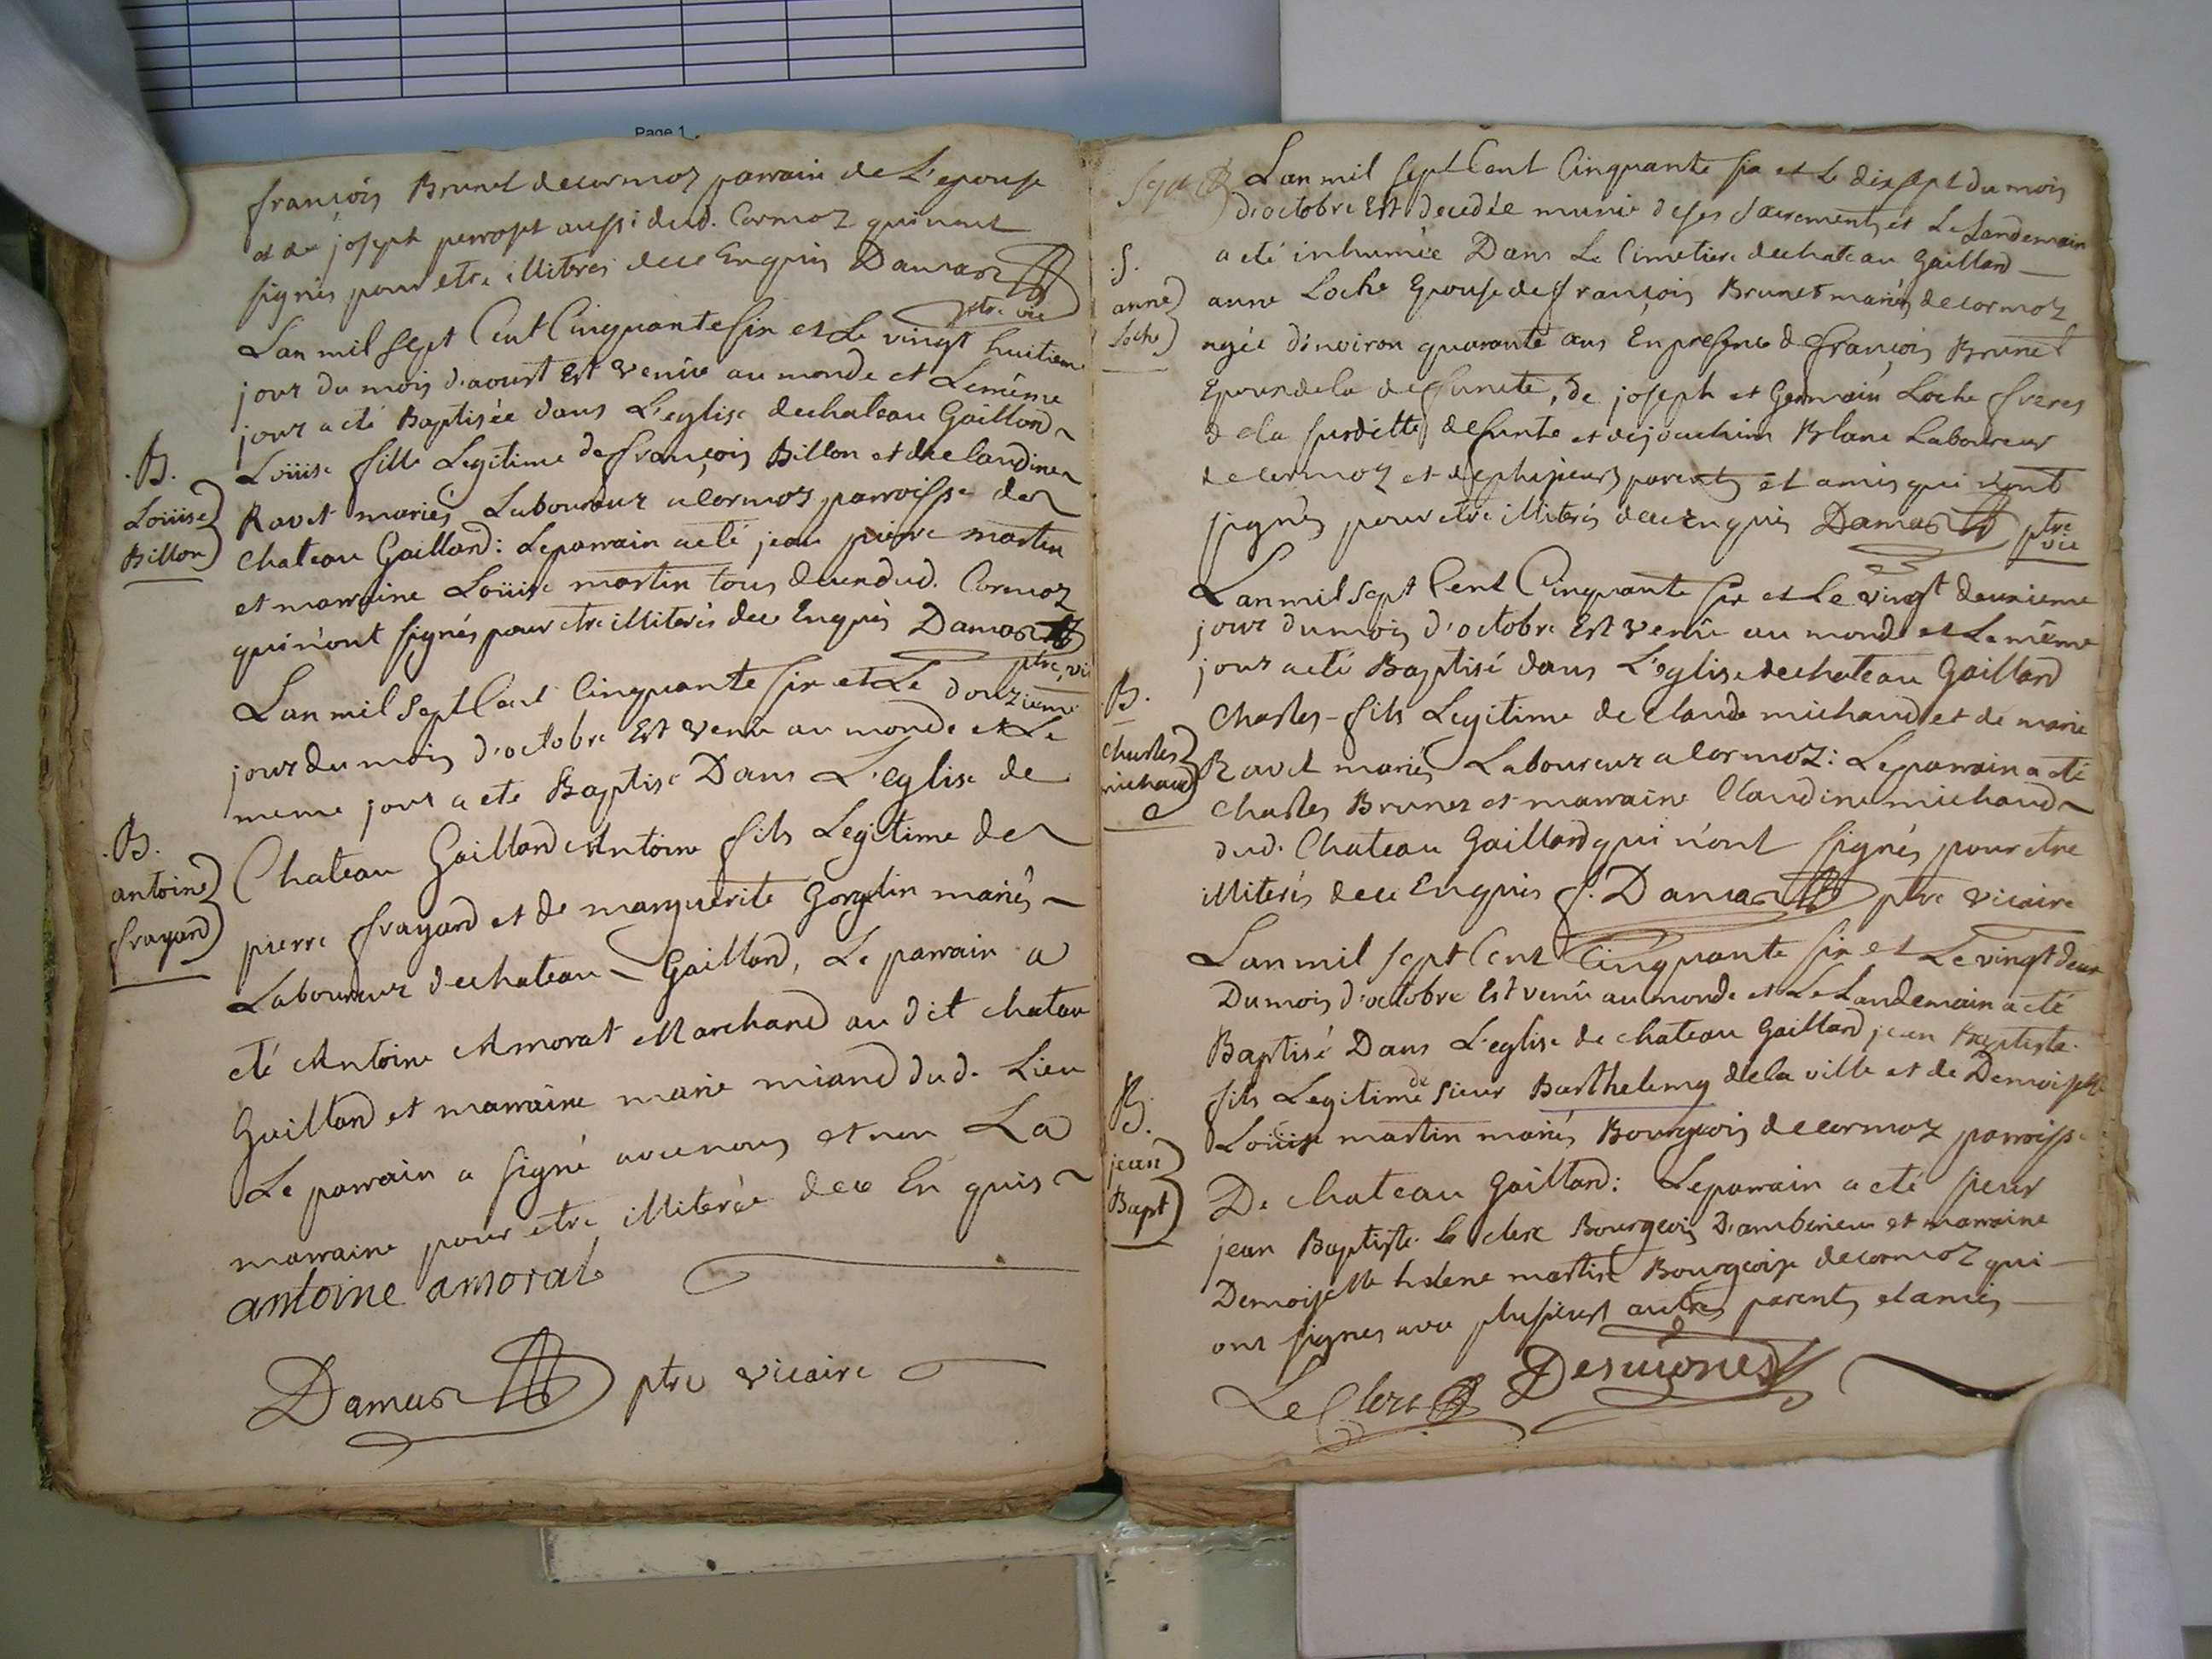 Page 1
françois Brunet de cormoz parrain de L'epouse
et de joseph perroset aussi dud. Cormoz qui n'ont
signés pour etre illiterés de ce Enquis Damas
ptre vic
Lan mil sept Cent Cinquante six et Le vingt huitieme
jour du mois d'aoust Est venüe au monde et Le même
jour a eté Baptisée dans L'eglise de chateau Gaillard
.B.
Loüise
Billon
Loüise fille Legitime de françois Billon et de claudine
Ravet mariés Laboureur a Cormoz parroisse de
chateau Gaillard: Le parrain a eté jean pierre martin
et marraine Loüise martin tous deux dud. Cormoz
qui n'ont signés pour etre illiterés de ce Enquis Damas
ptre, vic
Lan mil sept Cent Cinquante six et Le douzieme
jour du mois d'octobre Est venu au monde et Le
meme jour a eté Baptisé Dans L'eglise de
.B.
antoine
frayard
Chateau Gaillard Antoine fils Legitime de
pierre frayard et de marguerite mariés
Laboureur de chateau Gaillard, Le parrain a
eté Antoine Amorat Marchand au dit chateau
Gaillard et marraine marie miand dud. Lieu
Le parrain a signé avec nous et non La
marraine pour etre illiterée de ce En quis
antoine amorat
Damas ptre vicaire
Lan mil sept Cent Cinquante six et Le dix sept du mois
d'octobre Est decedée munie de ses Sacrements et Le Landemain
a eté inhumée Dans Le Cimetiere de chateau Gaillard
.S.
anne
Loche
anne Loche Epouse de françois Brunet mariés de cormoz
agée d'environ quarante ans En presence de françois Brunet
Epoux de la defuncte, de joseph et Germain Loche freres
de la susditte defunte et de joachim Blanc Laboureur
de cormoz et de plusieurs parents et amis qui n'ont
signés pour etre illiterés de ce enquis Damas ptre
vic
Lan mil sept Cent Cinquante six et Le vingt deuxieme
jour du mois d'octobre Est venû au monde et Le même
jour a eté Baptisé dans L'eglise de chateau Gaillard
B.
charles
michaud
Charles fils Legitime de claude michaud et de marie
Ravet mariés Laboureur a Cormoz: Le parrain a eté
Charles Brunet et marraine Claudine michaud
dud. Chateau Gaillard qui n'ont signés pour etre
illiterés de ce Enquis f. Damas ptre vicaire
Lan mil sept Cent Cinquante six et Le vingt deux
Du mois d'octobre Est venû au monde et Le Landemain a eté
Baptisé Dans L'eglise de chateau Gaillard jean Baptiste
B.
jean
Bapt
fils Legitime de sieur Barthelemy de la ville et de Demoiselle
Loüise martin mariés Bourgeois de cormoz parroisse
De chateau Gaillard: Le parrain a eté sieur
jean Baptiste le clerc Bourgeois D'amberieu et marraine
Demoiselle helene martin Bourgeoise de cormoz qui
ont signes avec plusieurs autres parents et amis
Le Clerc